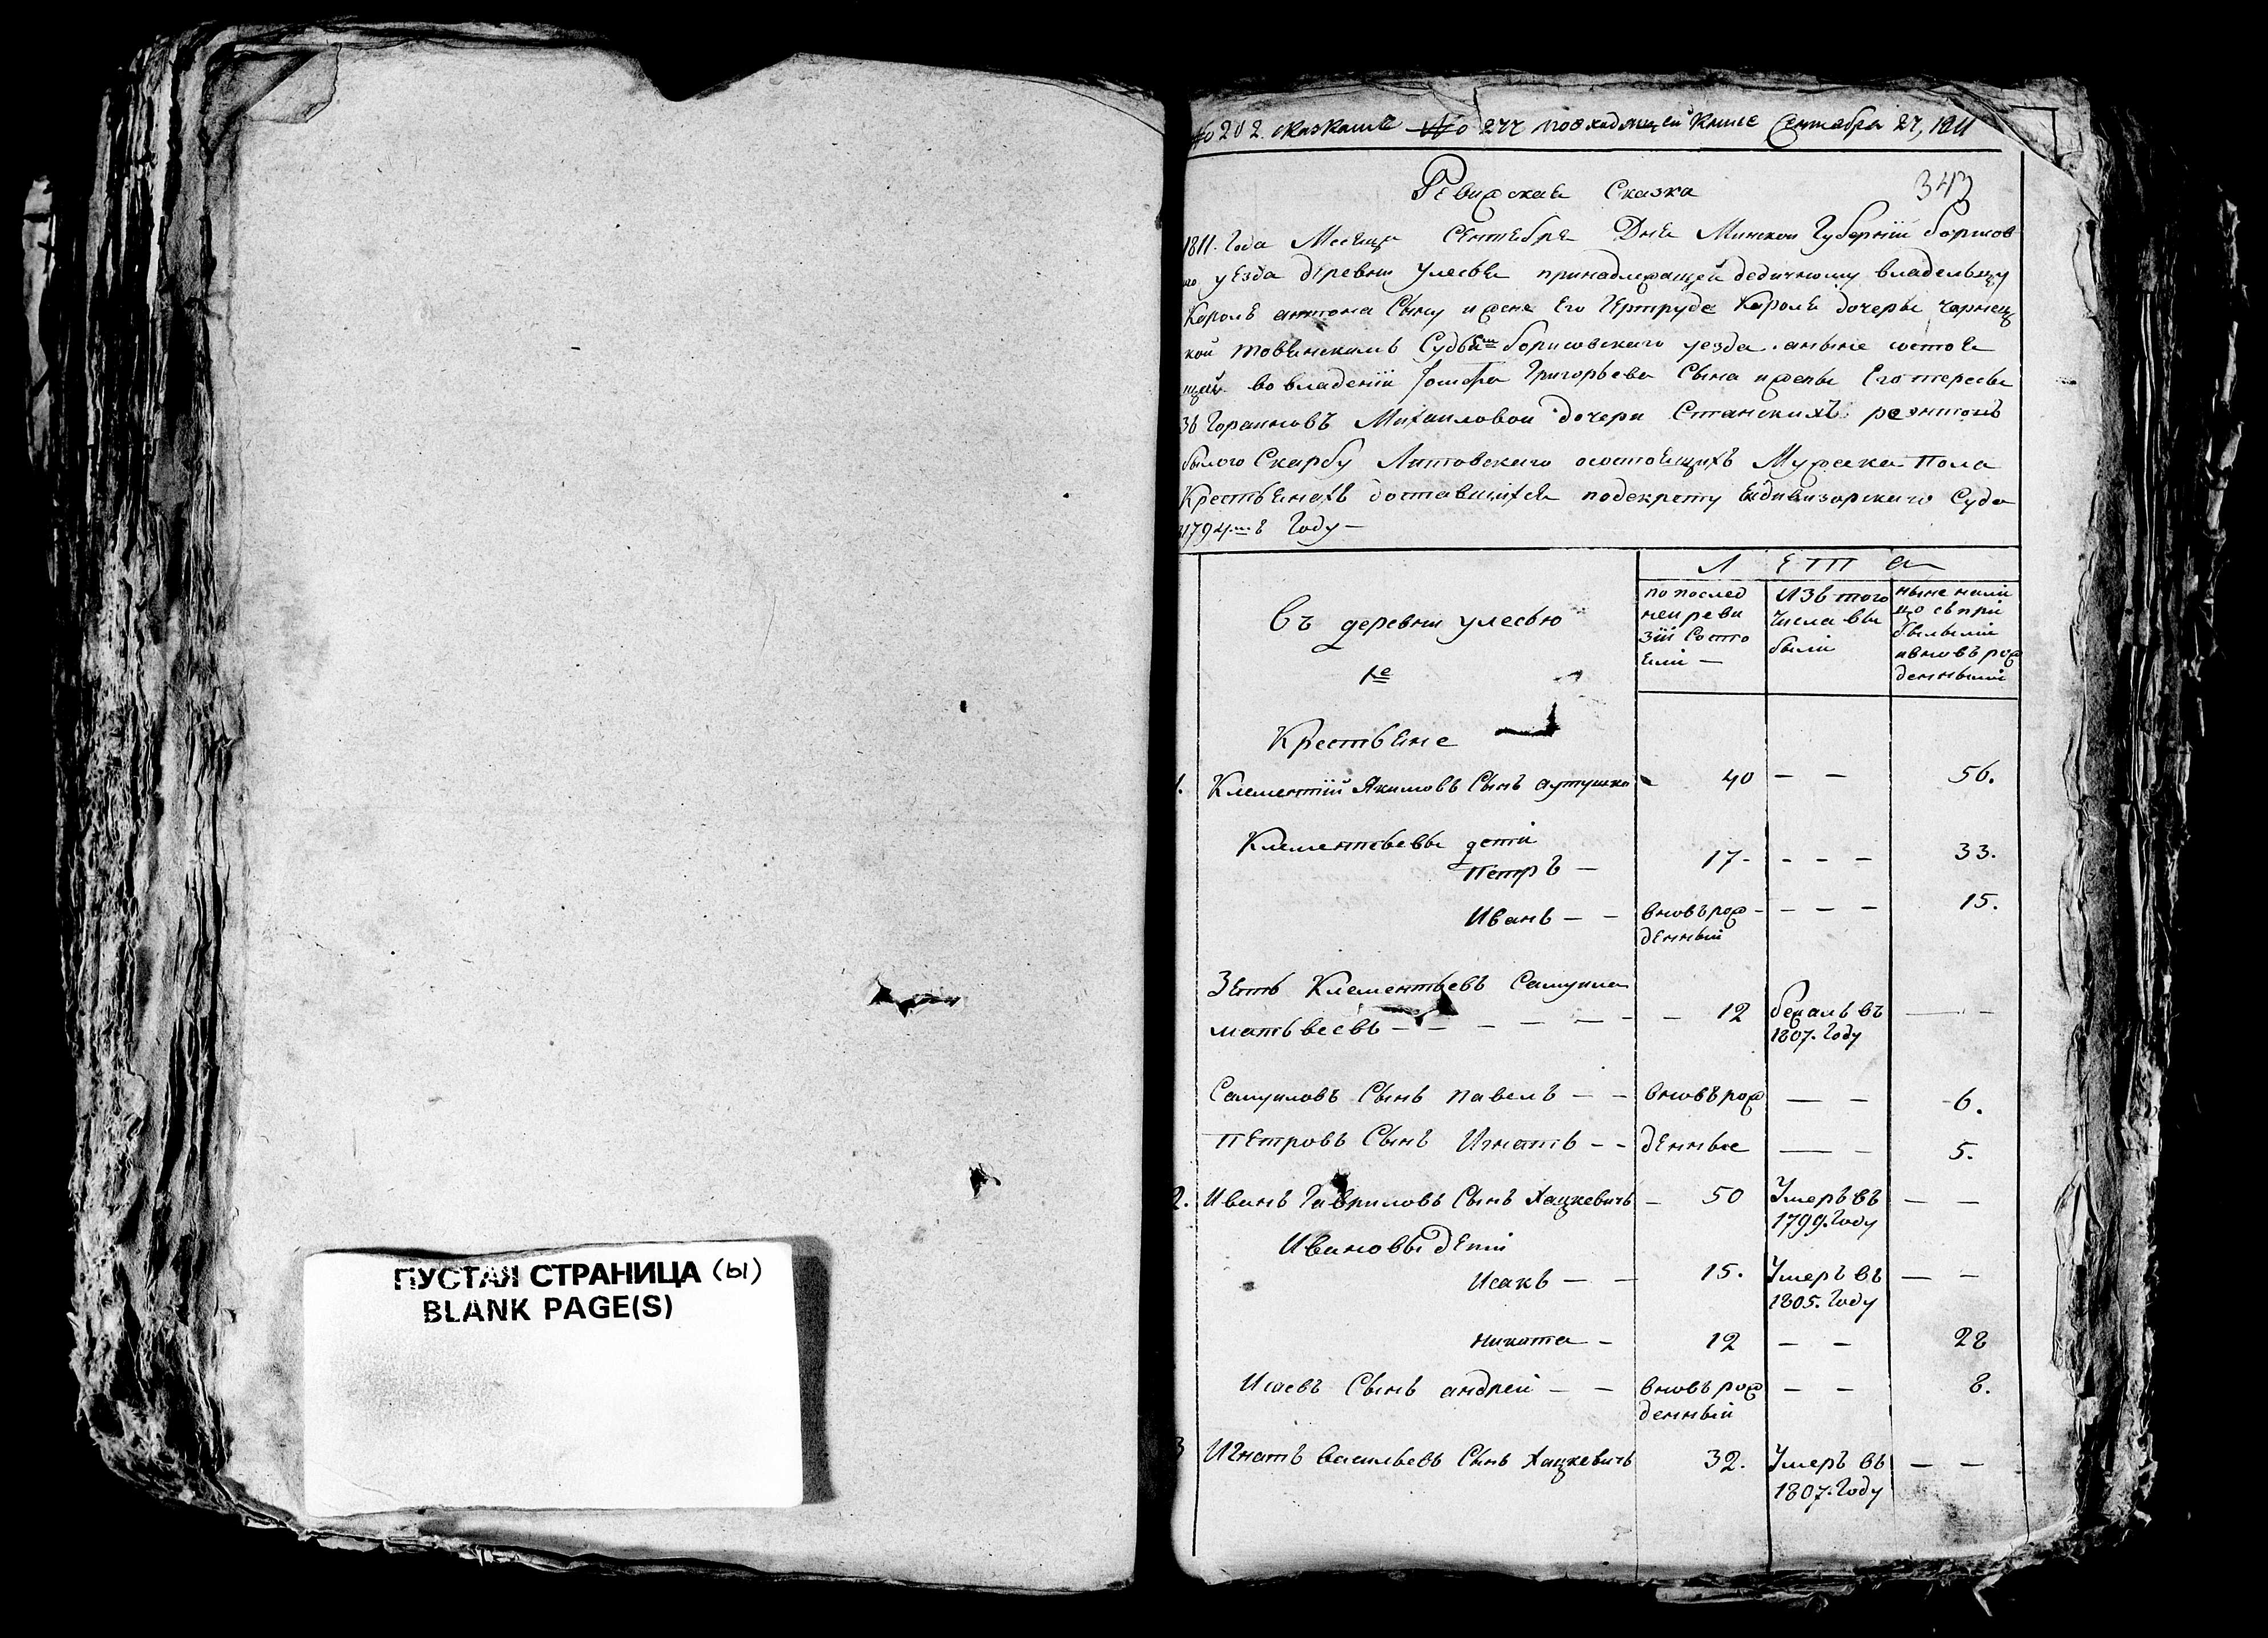 ПУСТАЯ СТРАНИЦА (ы)
BLANK PAGE(S)
№ 202. сказками № 277 повходящей Книге Сентября 27, 1811
343
Ревизская Сказка
1811. Года Месеца Сентебре Дне Минской Губернїи борисов
уезда деревни улесье принадлежащей дедичному владельцу
Кароле антона Сыну и жене Его Гертруде Кароле дочеры
Судьи борисовского уезда аныне состое
щей во владенїи Григорьева Сына и жены Его тересы
Михаиловой дочери
былого Скарбу Литовского осостоещихъ Мужска Пола
Крестьенахъ доставшихсе подекрету Суда
1794 Году —
Въ деревни улесью
1е
Л Е Т А
по послед
неи реви
зїи состо
Ели —
Изъ того
Числа вы
были
ныне нали
цо съ при
былыми
ивновъ рож
денными
Крестьене
1. Клементїй Якимовъ Сынъ Аутушко 40 — — 56.
Клементьевы дети
Петръ — 17 - - - — 33.
Иванъ — — вновърож - - — — 15.
денный
Зеть Клементьевъ Самуила
матьвеевъ — — — — — — — 12 бежалъ въ — -
1807. Году
Самуиловъ Сынъ павелъ — — вновърож — — 6.
петровъ Сынъ Игнатъ — - денные — - 5.
2. Иванъ Гавриловъ Сынъ Хацкевичъ — 50 Умеръ въ — —
1799. Году
Ивановы дети
Исакъ — — 15. Умеръ въ — —
1805. Году
никита — 12 — — 28
Исаевъ Сынъ андрей — — вновърож — — 8.
денный
3 Игнатъ васильевъ Сынъ Хацкевичъ 32. Умеръ въ — —
1807. Году